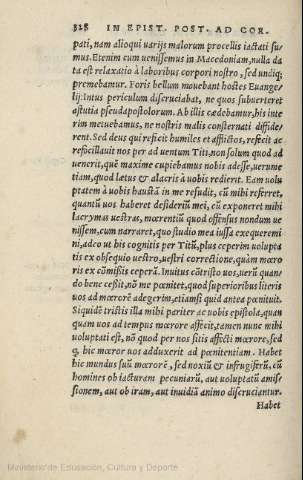 328 IN EPIST. POST. AD COR.
pati, nam alioqui uarijs malorum procellis iactati su-
mus. Etenim cum uenissemus in Macedoniam, nulla da
ta est relaxatio à laboribus corpori nostro, sed undiq;
premebamur. Foris bellum mouebant hostes Euange-
lij: Intus periculum discruciabat, ne quos subuerteret
astutia pseudapostolorum. Ab illis cædebamur, his inte
rim metuebamus, ne nostris malis consternati diffide-
rent. Sed deus qui reficit humiles et afflictos, refecit ac
refocillauit nos per aduentum Titi, non solum quod ad
uenerit, quē maxime cupiebamus nobis adesse, uerume
tiam, quod lætus & alacris à uobis rediret. Eam uolu
ptatem à uobis haustā in me refudit, cū mihi referret,
quantū uos haberet desideriū mei, cū exponeret mihi
lacrymas uestras, mœrentiū quod offensus nondum ue
nissem, cum narraret, quo studio mea iussa exequeremi
ni, adeo ut his cognitis per Titū, plus ceperim uolupta
tis ex obsequio uestro, uestri correctione, quàm mœro
ris ex cōmissis ceperā. Inuitus cōtristo uos, uerū quan-
do bene cessit, nō me pœnitet, quod superioribus literis
uos ad mœrorē adegerim, etiamsi quid antea pœnituit.
Siquidē tristis illa mihi pariter ac uobis epistola, quan
quam uos ad tempus mœrore affecit, tamen nunc mihi
uoluptati est, nō quod per nos sitis affecti mœrore, sed
q; hic mœror uos adduxerit ad pœnitentiam. Habet
hic mundus suū mœrorē, sed noxiū & infrugiferū, cū
homines ob iacturam pecuniarū, aut uoluptatū amis-
sionem, aut ob iram, aut inuidiā animo discruciantur.
Habet
Ministerio de Educación, Cultura y Deporte